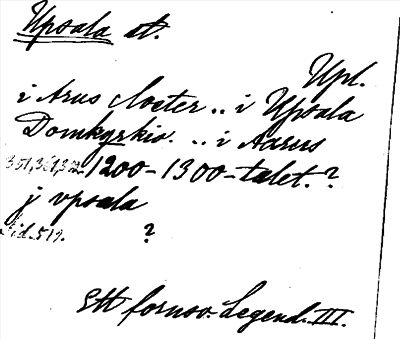 Upsala st.
Upl.
i Arus closter .. i Upsala
Domkyrkio. .. i Aarus
351, 361, 372. 1200-1300-talet.?
j vpsala
Sid. 519. ?
Ett fornsv. Legend. III.